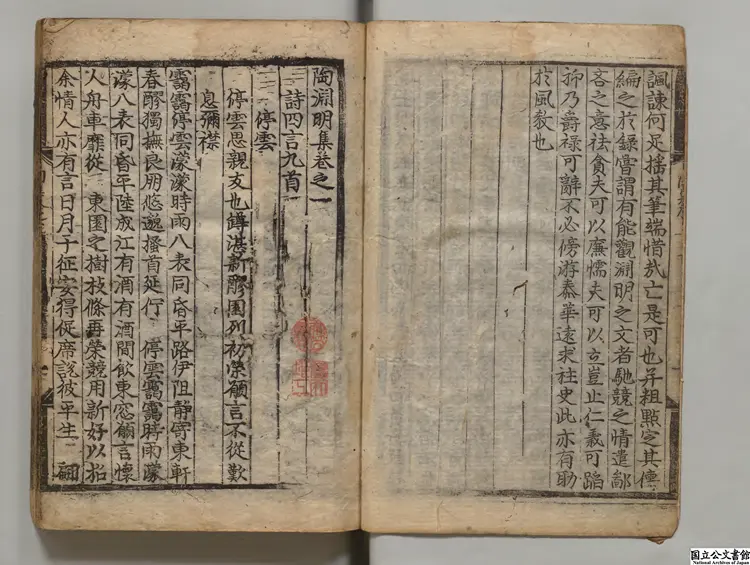 諷諫何足搖其筆端惜哉亡是可也并粗點定其傳
編之於錄嘗謂有能觀淵明之文者馳競之情遣鄙
吝之意祛貪夫可以廉懦夫可以立豈止仁義可蹈
抑乃爵祿可辭不必傍游泰華遠求柱史此亦有助
於風敎也
陶淵明集卷之一
詩四言九首
停雲
停雲思親友也罇湛新醪園列初榮願言不從歎
息彌襟
靄靄停雲濛濛時雨八表同昏平路伊阻靜寄東軒
春醪獨撫良朋悠邈搔首延佇 停雲靄靄時雨濛
濛八表同昏平陸成江有酒有酒間飲東窓願言懷
人舟車靡從 東園之樹枝條再榮競用新好以招
余情人亦有言日月于征安得促席說彼平生 翩
国立公文書館
National Archives of Japan